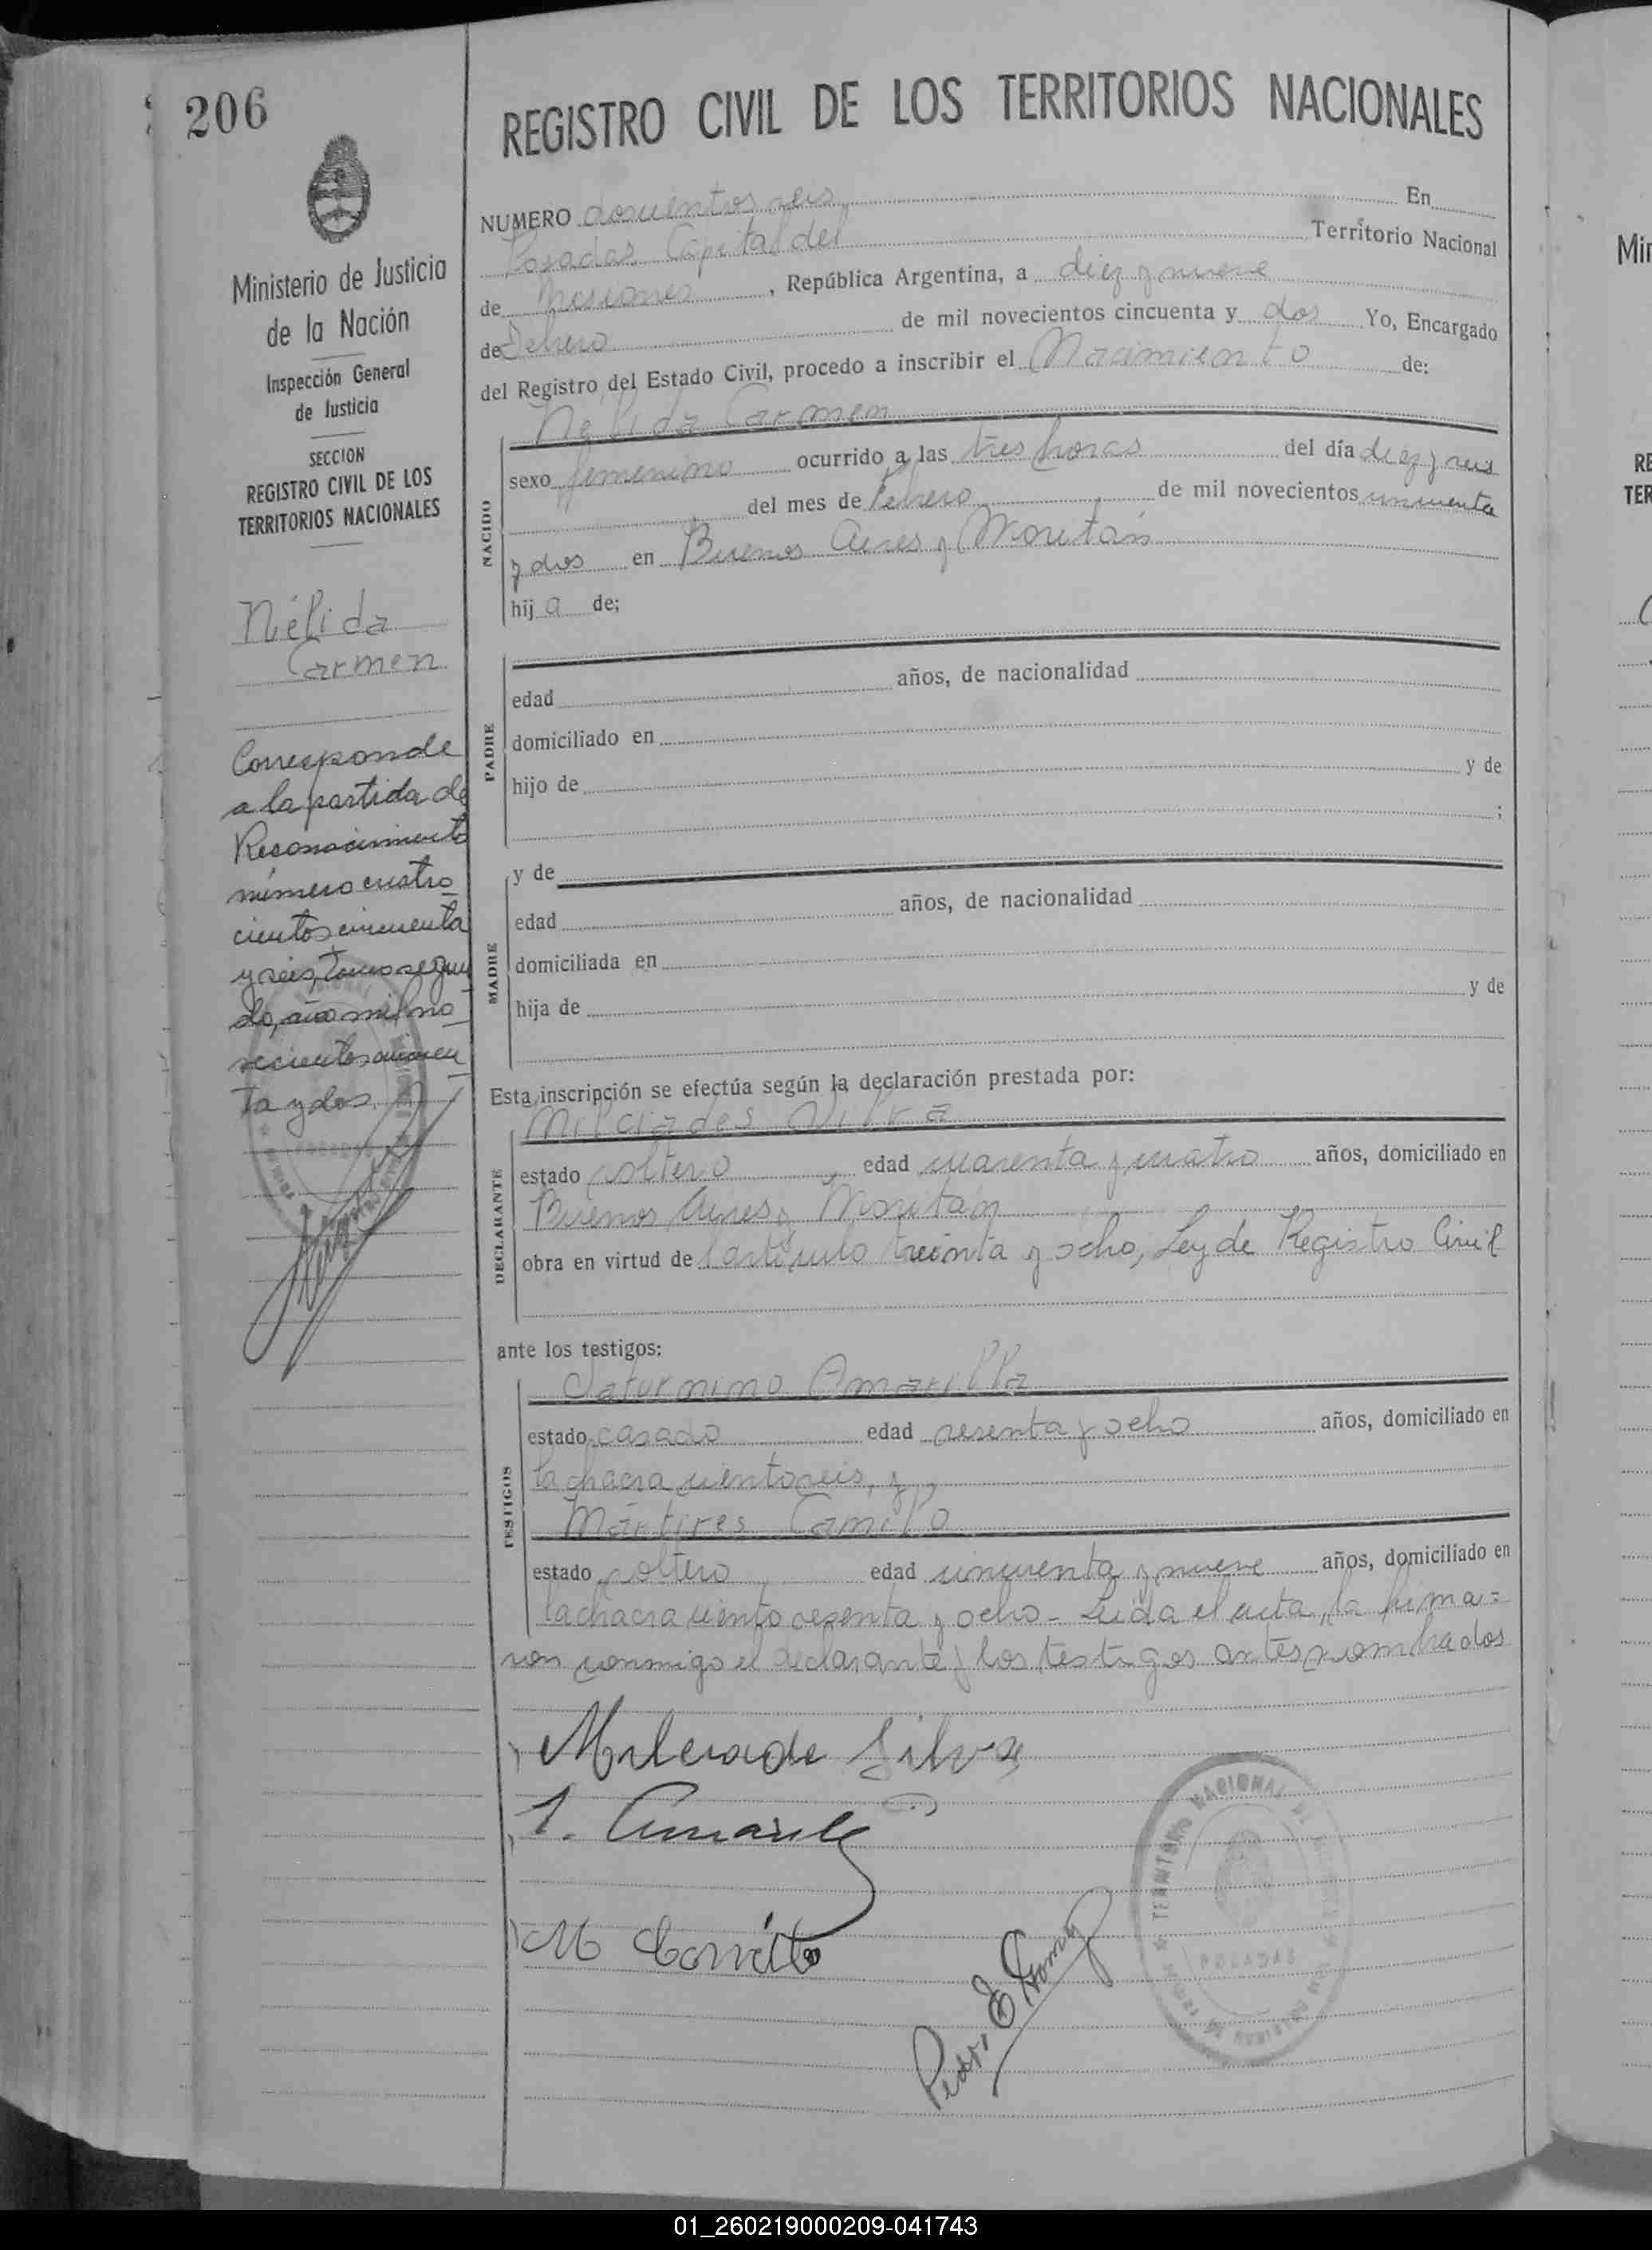 206
REGISTRO CIVIL DE LOS TERRITORIOS NACIONALES
Ministerio de Justicia
de la Nación
Inspección General
de Justicia
SECCION
REGISTRO CIVIL DE LOS
TERRITORIOS NACIONALES
Nélida
Carmen
Corresponde
a la partida de
Reconocimiento
número cuatro
cientos cincuenta
y seis, tomo segun
do, año mil no
vecientos cincuen
ta y dos.
NUMERO doscientos seis En
Posadas Capital del Territorio Nacional
de Misiones, República Argentina, a diez y nueve
de Febrero de mil novecientos cincuenta y dos Yo, Encargado
del Registro del Estado Civil, procedo a inscribir el Nacimiento de:
NACIDO
Nélida Carmen
sexo femenino ocurrido a las tres horas del día diez y seis
del mes de Febrero de mil novecientos cincuenta
y dos en Buenos Aires y Moritán
hija de;
PADRE
edad años, de nacionalidad
domiciliado en
hijo de y de
;
MADRE
y de
edad años, de nacionalidad
domiciliada en
hija de y de
Esta inscripción se efectúa según la declaración prestada por:
DECLARANTE
Milciades Silva
estado soltero edad cuarenta y cuatro años, domiciliado en
Buenos Aires y Moritán
obra en virtud de l artículo treinta y ocho, Ley de Registro Civil
ante los testigos:
TESTIGOS
Saturnino Amarilla
estado casado edad sesenta y ocho años, domiciliado en
la chacra ciento seis, y
Mártires Camilo
estado soltero edad cincuenta y nueve años, domiciliado en
la chacra ciento sesenta y ocho - Leida el acta, la firma=
ron conmigo el declarante y los testigos antes nombrados
Milciade Silva
S. Amarilla
M Camilo
Pedro E Gomez
TERRITORIO NACIONAL DE
POSADAS
01_260219000209-041743